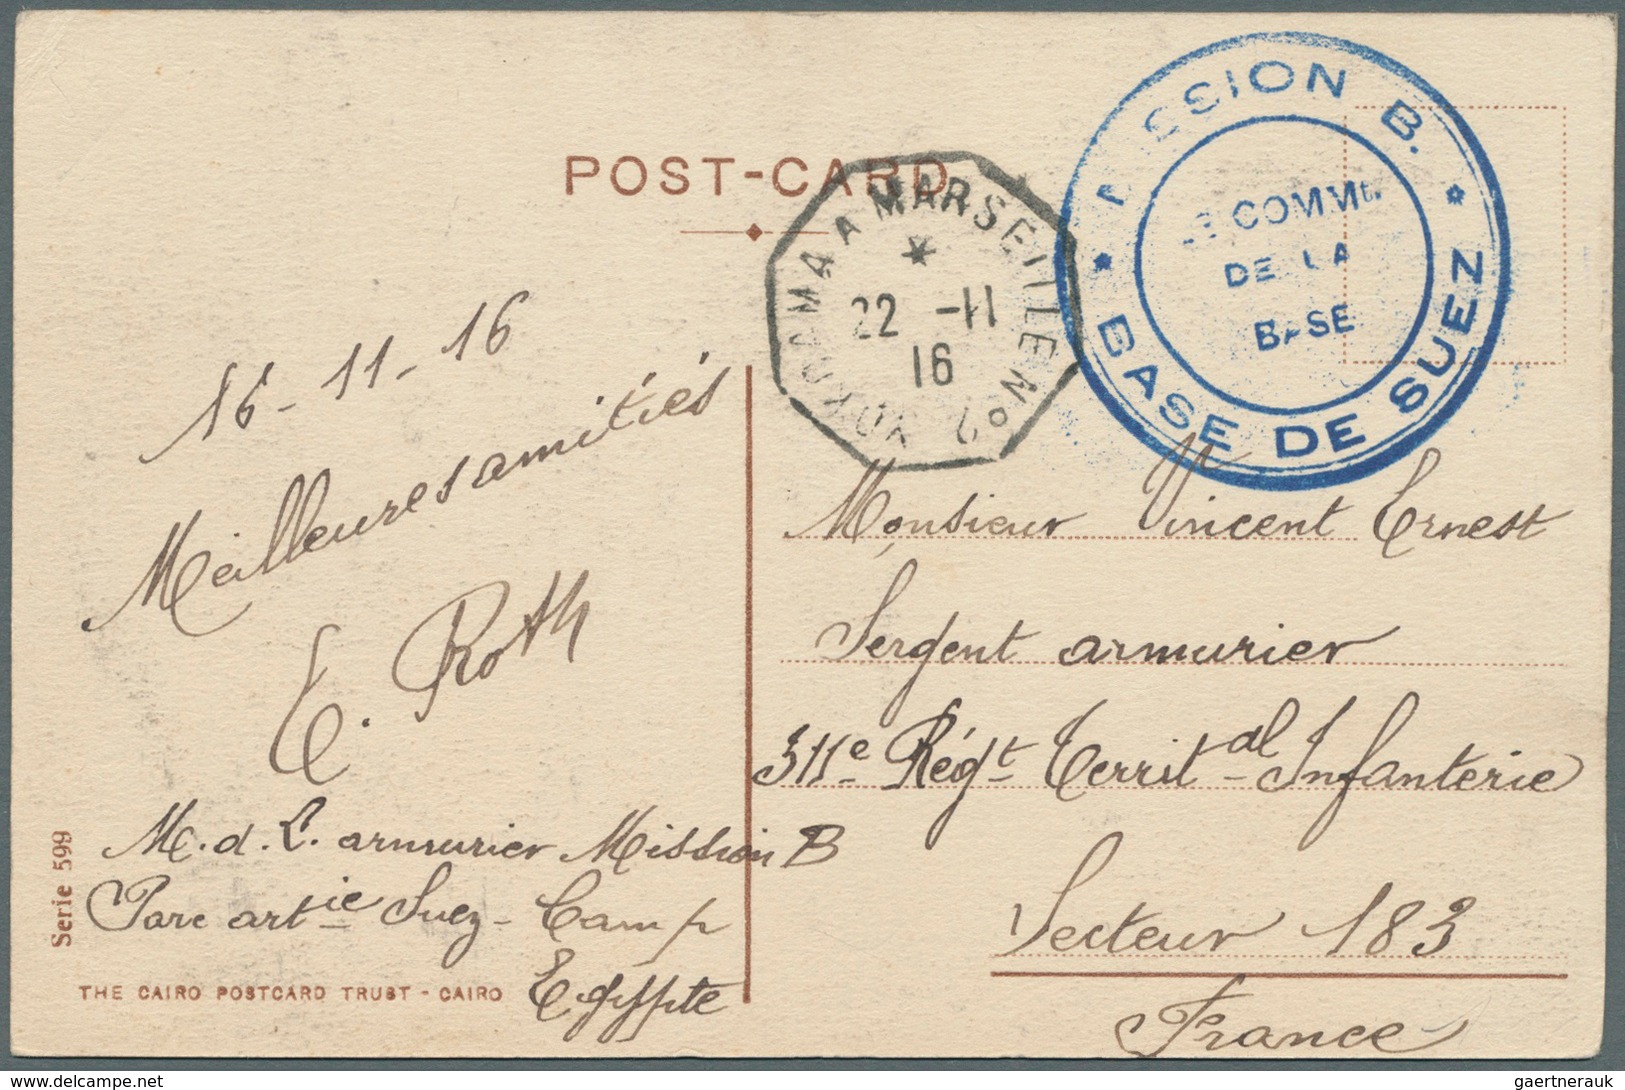 POST-CARD
YOKOHAMA A MARSEILLE No 2
22 -11
16
MISSION B.
LE COMMt.
DE LA
BASE
BASE DE SUEZ
16-11-16
Meilleures amitiés
E. Roth
M.d.L. armurier Mission B
Parc artie Suez-Camp
Egypte
Monsieur Vincent Ernest
Sergent armurier
311e Régt Territal Infanterie
Secteur 183
France
Serie 599
THE CAIRO POSTCARD TRUST - CAIRO
gaertnerauk